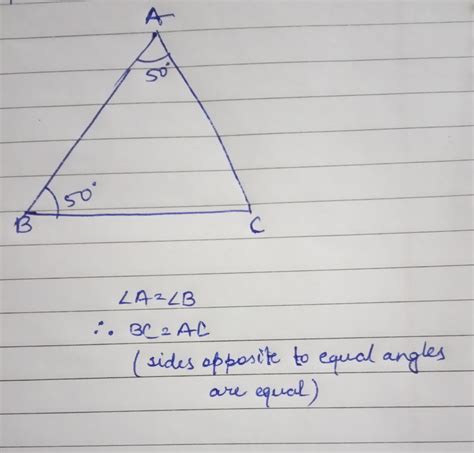 A
50°
50°
B
C
∠A=∠B
∴ BC=AC
(sides opposite to equal angles
are equal)